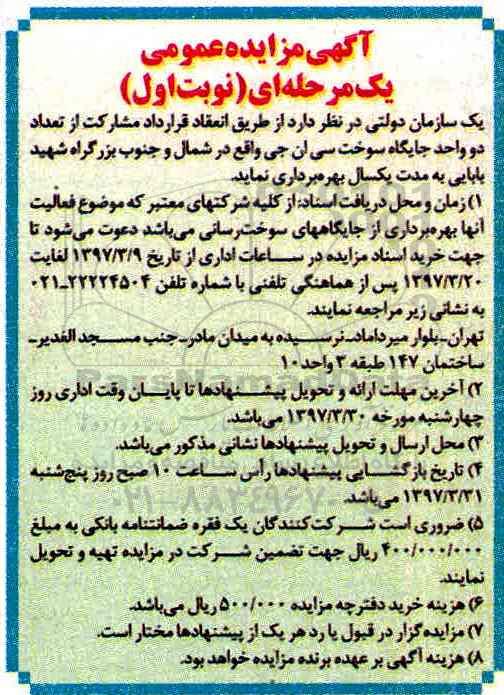 آگهی مزایده عمومی
یک مرحله‌ای (نوبت اول)
یک سازمان دولتی در نظر دارد از طریق انعقاد قرارداد مشارکت از تعداد
دو واحد جایگاه سوخت سی ان جی واقع در شمال و جنوب بزرگراه شهید
بابایی به مدت یکسال بهره‌برداری نماید.
۱) زمان و محل دریافت اسناد: از کلیه شرکتهای معتبر که موضوع فعالیت
آنها بهره‌برداری از جایگاههای سوخت‌رسانی می‌باشد دعوت می‌شود تا
جهت خرید اسناد مزایده در ساعات اداری از تاریخ ۱۳۹۷/۳/۹ لغایت
۱۳۹۷/۳/۲۰ پس از هماهنگی تلفنی با شماره تلفن ۲۲۲۲۴۵۰۴-۰۲۱
به نشانی زیر مراجعه نمایند.
تهران-بلوار میرداماد-نرسیده به میدان مادر-جنب مسجد الغدیر-
ساختمان ۱۴۷ طبقه ۳ واحد ۱۰
۲) آخرین مهلت ارائه و تحویل پیشنهادها تا پایان وقت اداری روز
چهارشنبه مورخه ۱۳۹۷/۳/۳۰ می‌باشد.
۳) محل ارسال و تحویل پیشنهادها نشانی مذکور می‌باشد.
۴) تاریخ بازگشایی پیشنهادها رأس ساعت ۱۰ صبح روز پنج‌شنبه
۱۳۹۷/۳/۳۱ می‌باشد.
۵) ضروری است شرکت‌کنندگان یک فقره ضمانتنامه بانکی به مبلغ
۴۰۰/۰۰۰/۰۰۰ ریال جهت تضمین شرکت در مزایده تهیه و تحویل
نمایند.
۶) هزینه خرید دفترچه مزایده ۵۰۰/۰۰۰ ریال می‌باشد.
۷) مزایده‌گزار در قبول یا رد هر یک از پیشنهادها مختار است.
۸) هزینه آگهی بر عهده برنده مزایده خواهد بود.
ParsNamadData
۰۲۱-۸۸۳۴۹۶۷۰